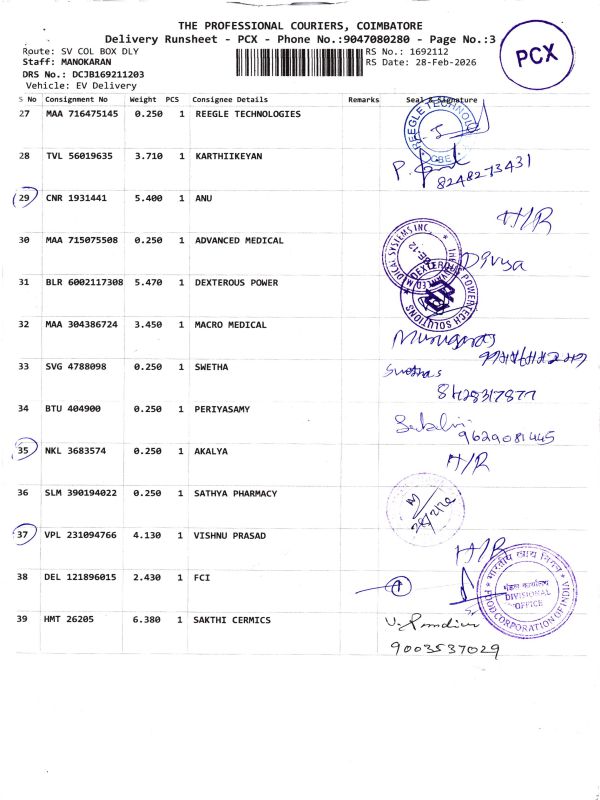 THE PROFESSIONAL COURIERS, COIMBATORE
Delivery Runsheet - PCX - Phone No.:9047080280 - Page No.:3
Route: SV COL BOX DLY
RS No.: 1692112
Staff: MANOKARAN
RS Date: 28-Feb-2026
DRS No.: DCJB169211203
Vehicle: EV Delivery
PCX
S No Consignment No Weight PCS Consignee Details Remarks Seal & Signature
27 MAA 716475145 0.250 1 REEGLE TECHNOLOGIES
REEGLE TECHNOLO
CBE
28 TVL 56019635 3.710 1 KARTHIIKEYAN
8248273431
29 CNR 1931441 5.400 1 ANU
H/R
30 MAA 715075508 0.250 1 ADVANCED MEDICAL
DICAL SYSTEMS INC.
Divya
31 BLR 6002117308 5.470 1 DEXTEROUS POWER
DEXTEROUS POWERTECH SOLUTIONS
32 MAA 304386724 3.450 1 MACRO MEDICAL
33 SVG 4788098 0.250 1 SWETHA
Swetha S
8428317877
34 BTU 404900 0.250 1 PERIYASAMY
9629081445
35 NKL 3683574 0.250 1 AKALYA
H/R
36 SLM 390194022 0.250 1 SATHYA PHARMACY
28/2/26
37 VPL 231094766 4.130 1 VISHNU PRASAD
H/R
38 DEL 121896015 2.430 1 FCI
भारतीय खाद्य निगम
मंडल कार्यालय
DIVISIONAL
OFFICE
FOOD CORPORATION OF INDIA
39 HMT 26205 6.380 1 SAKTHI CERMICS
9003537029